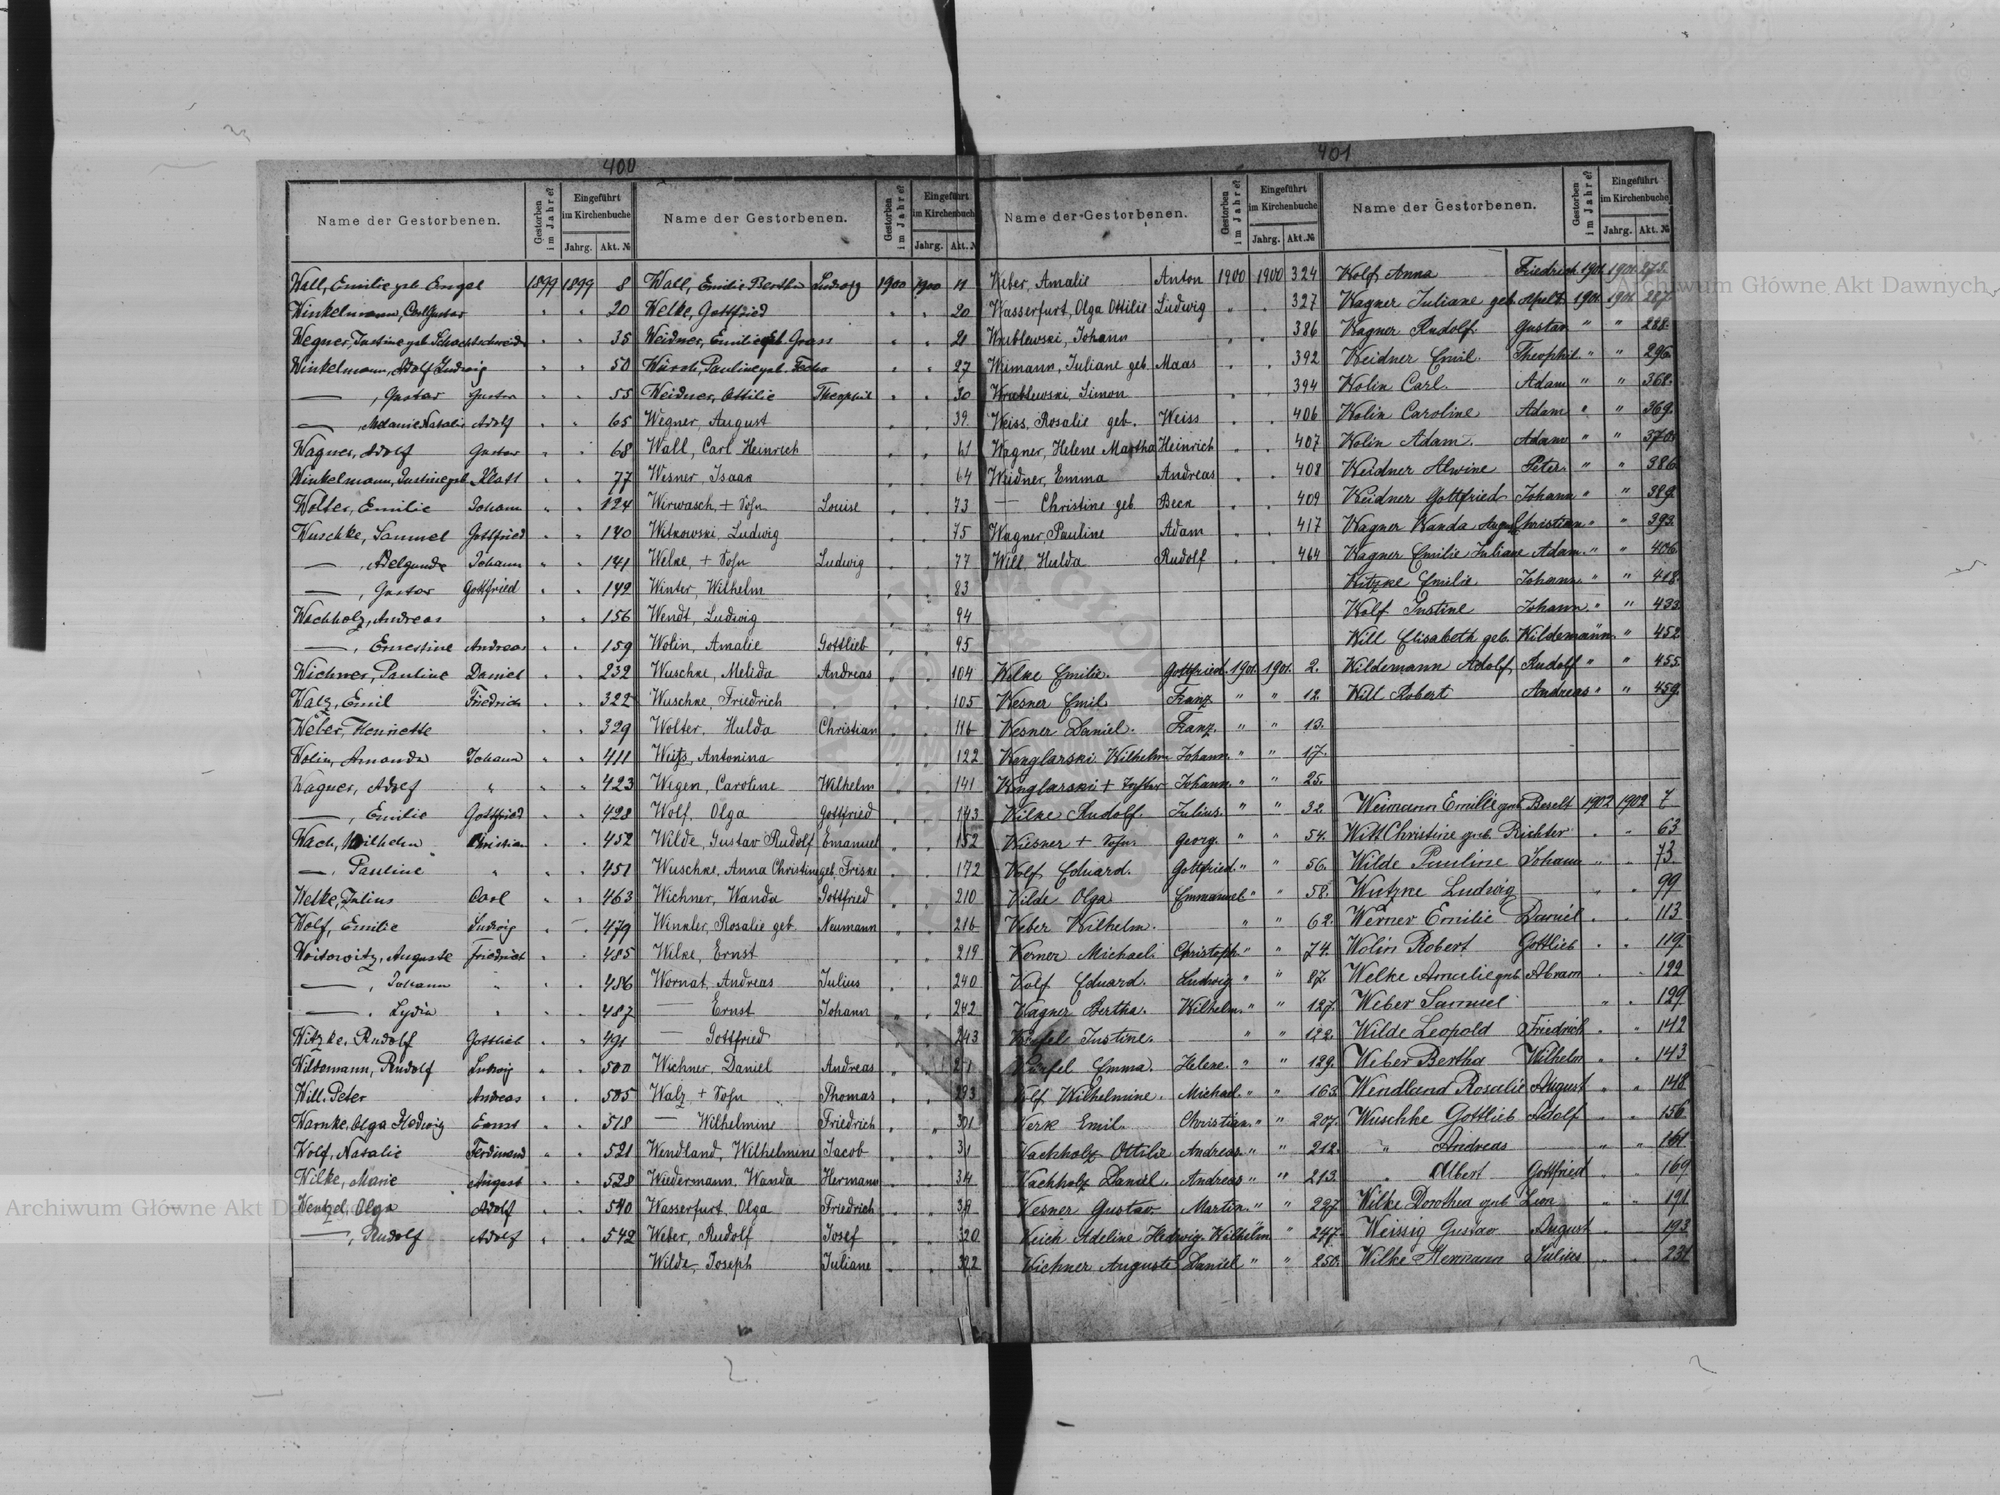 400
Name der Gestorbenen. Gestorben im Jahre? Eingeführt im Kirchenbuche Jahrg. Akt. №
Wall, Emilie geb. Engel 1899 1899 8
Winkelmann, Carl Gustav " " 20
Wegner, Justine geb. " " 35
Winkelmann, Adolf Ludwig " " 50
—, Gustav Gustav " " 55
—, Melanie Natalie Adolf " " 65
Wagner, Adolf Gustav " " 68
Winkelmann, Justine geb. Klatt " " 77
Wolter, Emilie Johann " " 124
Wuschke, Samuel Gottfried " " 140
—, Adelgunde Johann " " 141
—, Gustav Gottfried " " 149
Wachholz, Andreas " " 156
—, Ernestine Andreas " " 159
Wichner, Pauline Daniel " " 232
Walz, Emil Friedrich " " 322
Weber, Henriette " " 329
Wolin, Amanda Johann " " 411
Wagner, Adolf " " " 423
—, Emilie Gottfried " " 428
Wach, Wilhelm Christian " " 452
—, Pauline " " " 451
Welke, Julius Carl " " 463
Wolf, Emilie Ludwig " " 479
Woitowitz, Auguste Friedrich " " 485
—, Johann " " " 486
—, Lydia " " " 487
Witzke, Rudolf Gottlieb " " 491
Wildemann, Rudolf Ludwig " " 500
Will, Peter Andreas " " 505
Warnke, Olga Hedwig Ernst " " 518
Wolf, Natalie Ferdinand " " 521
Wilke, Marie August " " 528
Wentzel, Olga Adolf " " 540
—, Rudolf Adolf " " 542
Name der Gestorbenen. Gestorben im Jahre? Eingeführt im Kirchenbuch Jahrg. Akt. №
Wall, Emilie Bertha Ludwig 1900 1900 11
Welke, Gottfried " " 20
Weidner, Emilie geb. Grass " " 21
Würch, Pauline geb. " " 27
Weidner, Ottilie Theophil " " 30
Wegner, August " " 39
Wall, Carl Heinrich " " 41
Wesner, Isaak " " 64
Wirwasch, + Sohn Louise " " 73
Witkowski, Ludwig " " 75
Welke, + Sohn Ludwig " " 77
Winter, Wilhelm " " 83
Wendt, Ludwig " " 94
Wolin, Amalie Gottlieb " " 95
Wuschke, Melida Andreas " " 104
Wuschke, Friedrich " " 105
Wolter, Hulda Christian " " 116
Weiß, Antonina " " 122
Wegen, Caroline Wilhelm " " 141
Wolf, Olga Gottfried " " 143
Wilde, Gustav Rudolf Emanuel " " 152
Wuschke, Anna Christine geb. Friske " " 172
Wichner, Wanda Gottfried " " 210
Winkler, Rosalie geb. Neumann " " 216
Welke, Ernst " " 219
Wornat, Andreas Julius " " 240
— Ernst Johann " " 242
— Gottfried " " 243
Wichner, Daniel Andreas " "
Walz + Sohn Thomas " " 293
— Wilhelmine Friedrich " " 301
Wendland, Wilhelmine Jacob " "
Wiedermann, Wanda Hermann " "
Wasserfurt, Olga Friedrich " "
Weber, Rudolf Josef " " 320
Wilde, Joseph Juliane " " 322
401
Name der Gestorbenen. Gestorben im Jahre? Eingeführt im Kirchenbuche Jahrg. Akt. №
Weber, Amalie Anton 1900 1900 324
Wasserfurt, Olga Ottilie Ludwig " " 327
Wrublewski, Johann " " 386
Weimann, Juliane geb. Maas " " 392
Wrublewski, Simon " " 394
Weiss, Rosalie geb. Weiss " " 406
Wagner, Helene Martha Heinrich " " 407
Weidner, Emma Andreas " " 408
— Christine geb. Beck " " 409
Wagner, Pauline Adam " " 417
Will, Hulda Rudolf " " 464
Wilke Emilie. Gottfried. 1901. 1901. 2.
Wesner Emil Franz " " 12.
Wesner Daniel. Franz. " " 13.
Wenglarski Wilhelm Johann " " 17.
Wenglarski + Tochter Johann " " 25.
Wilke Rudolf. Julius. " " 32.
Wiesner + Sohn Georg. " " 54.
Wolf Eduard. Gottfried. " " 56.
Wilde Olga Emmanuel " " 58.
Weber Wilhelm. " " 62.
Werner Michael. Christoph " " 74.
Wolf Eduard. Ludwig " " 87.
Wagner Bertha. Wilhelm. " " 127.
Würfel Justine. " " 122.
Würfel Emma. Helene. " " 129.
Wolf Wilhelmine. Michael. " " 163.
Werk Emil. Christian. " " 207.
Wachholz Ottilie Andreas " " 212.
Wachholz Daniel. Andreas " " 213.
Wesner Gustav Martin " " 227.
Weich Adeline Hedwig Wilhelm " 247.
Wichner Auguste Daniel " " 250.
Name der Gestorbenen. Gestorben im Jahre? Eingeführt im Kirchenbuche Jahrg. Akt. №
Wolf, Anna Friedrich 1901. 1901. 273.
Wagner Juliane geb. Apelt 1901. 1901. 287.
Wagner Rudolf. Gustav " " 288.
Weidner Emil. Theophil " " 296.
Wolin Carl. Adam " " 368.
Wolin Caroline Adam " " 369.
Wolin Adam. Adam " " 370.
Weidner Alwine Peter " " 386.
Weidner Gottfried Johann " " 389.
Wagner Wanda Christian " " 393.
Wagner Emilie Juliane Adam " " 406.
Witzke Emilie Johann " " 418.
Wolf Justine Johann " " 433.
Will Elisabeth geb. Wildemann " 452.
Wildemann Adolf, Rudolf " " 455.
Will Robert Andreas " " 459.
Weimann Emilie geb. Beselt 1902 1902 7
Witt Christine geb. Richter " " 63
Wilde Pauline Johann " " 73
Wutzke Ludwig " " 99
Werner Emilie Daniel " " 113
Wolin Robert Gottlieb " " 119
Welke Amalie geb. Abram " " 122
Weber Samuel " " 129
Wilde Leopold Friedrich " " 142
Weber Bertha Wilhelm " " 143
Wendland Rosalie August " " 148
Wuschke Gottlieb Adolf " " 156
" Andreas " " 161
" Albert Gottfried " " 169
Wilke Dorothea geb. " " 191
Weissig Gustav August " " 193
Wilke Hermann Julius " " 231
Archiwum Główne Akt Dawnych
Archiwum Główne Akt Dawnych